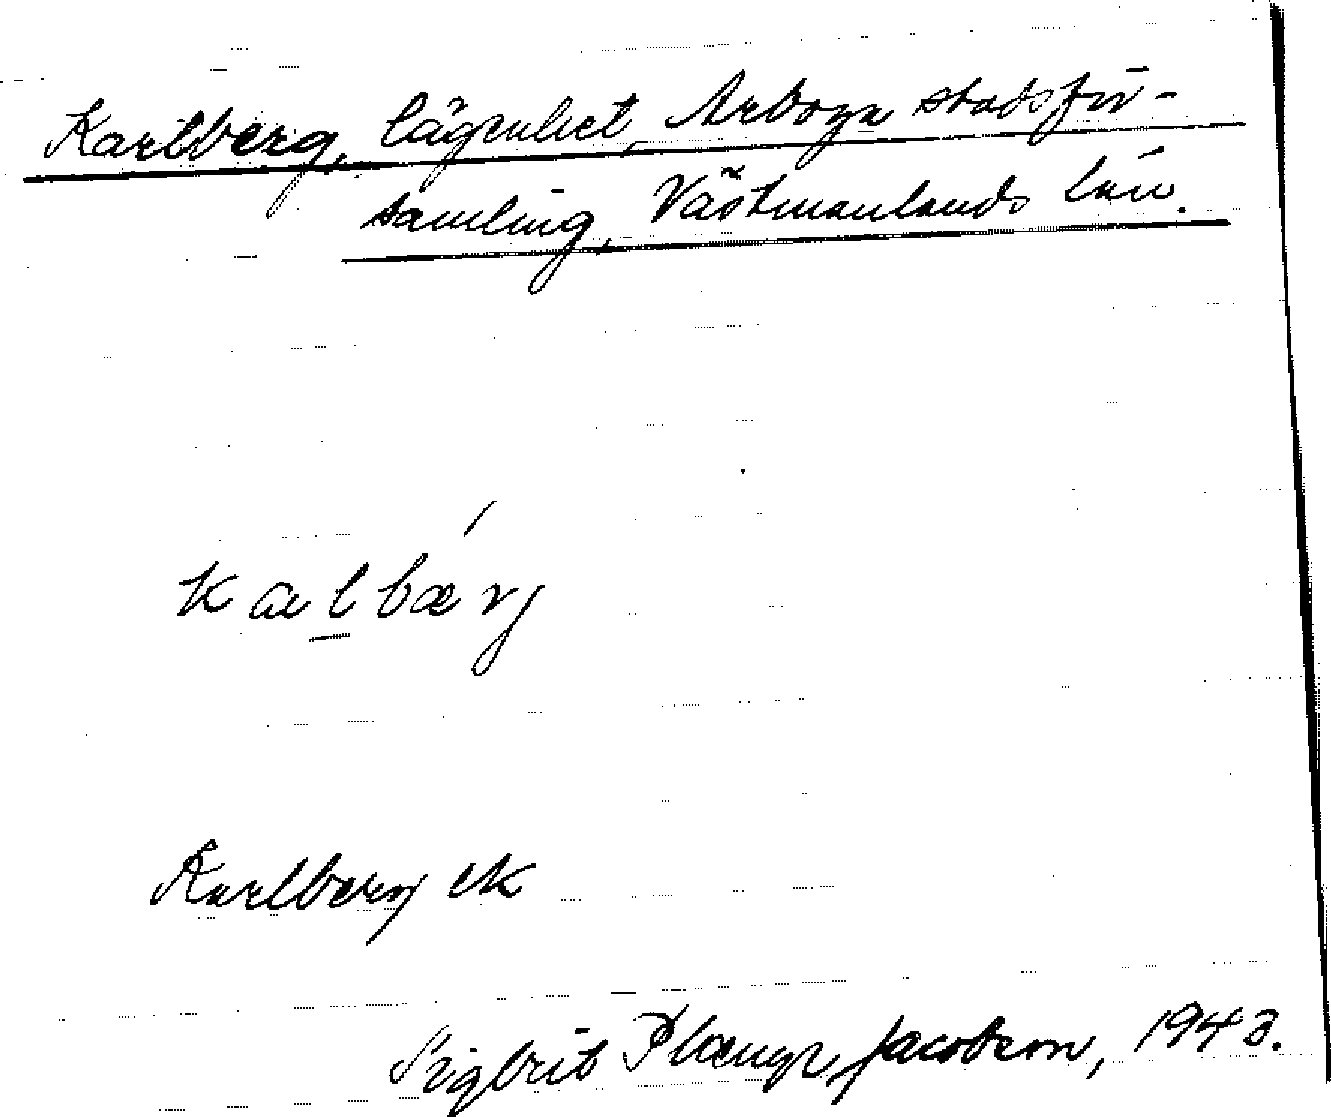 Karlberg, lägenhet, Arboga stadsför-
samling, Västmanlands län.
kalbærj
Karlberg ek
Sigbrit Plænge Jacobson, 1943.